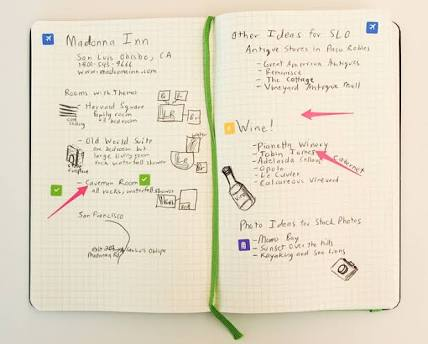 Madonna Inn
San Luis Obisbo, CA
1-800-543-9666
www.madonnainn.com
Rooms with Themes
- Harvard Square
family room
bedroom
- Old World Suite
one bedroom but
large living room
rock waterfall shower
- Caveman Room
all rocks, waterfall shower
San Francisco
San Luis Obispo
Madonna Rd
Other Ideas for SLO
Antique Stores in Paso Robles
- Great American Antiques
- Reminisce
- The Cottage
- Vineyard Antique Mall
Wine!
- Pianetta Winery
- Tobin James
- Adelaida Cellars
Cabernet
- Opolo
- Le Cuvier
- Calcareous Vineyard
Photo Ideas for Stock Photos
- Morro Bay
- Sunset Over the hills
- Kayaking and Sea Lions